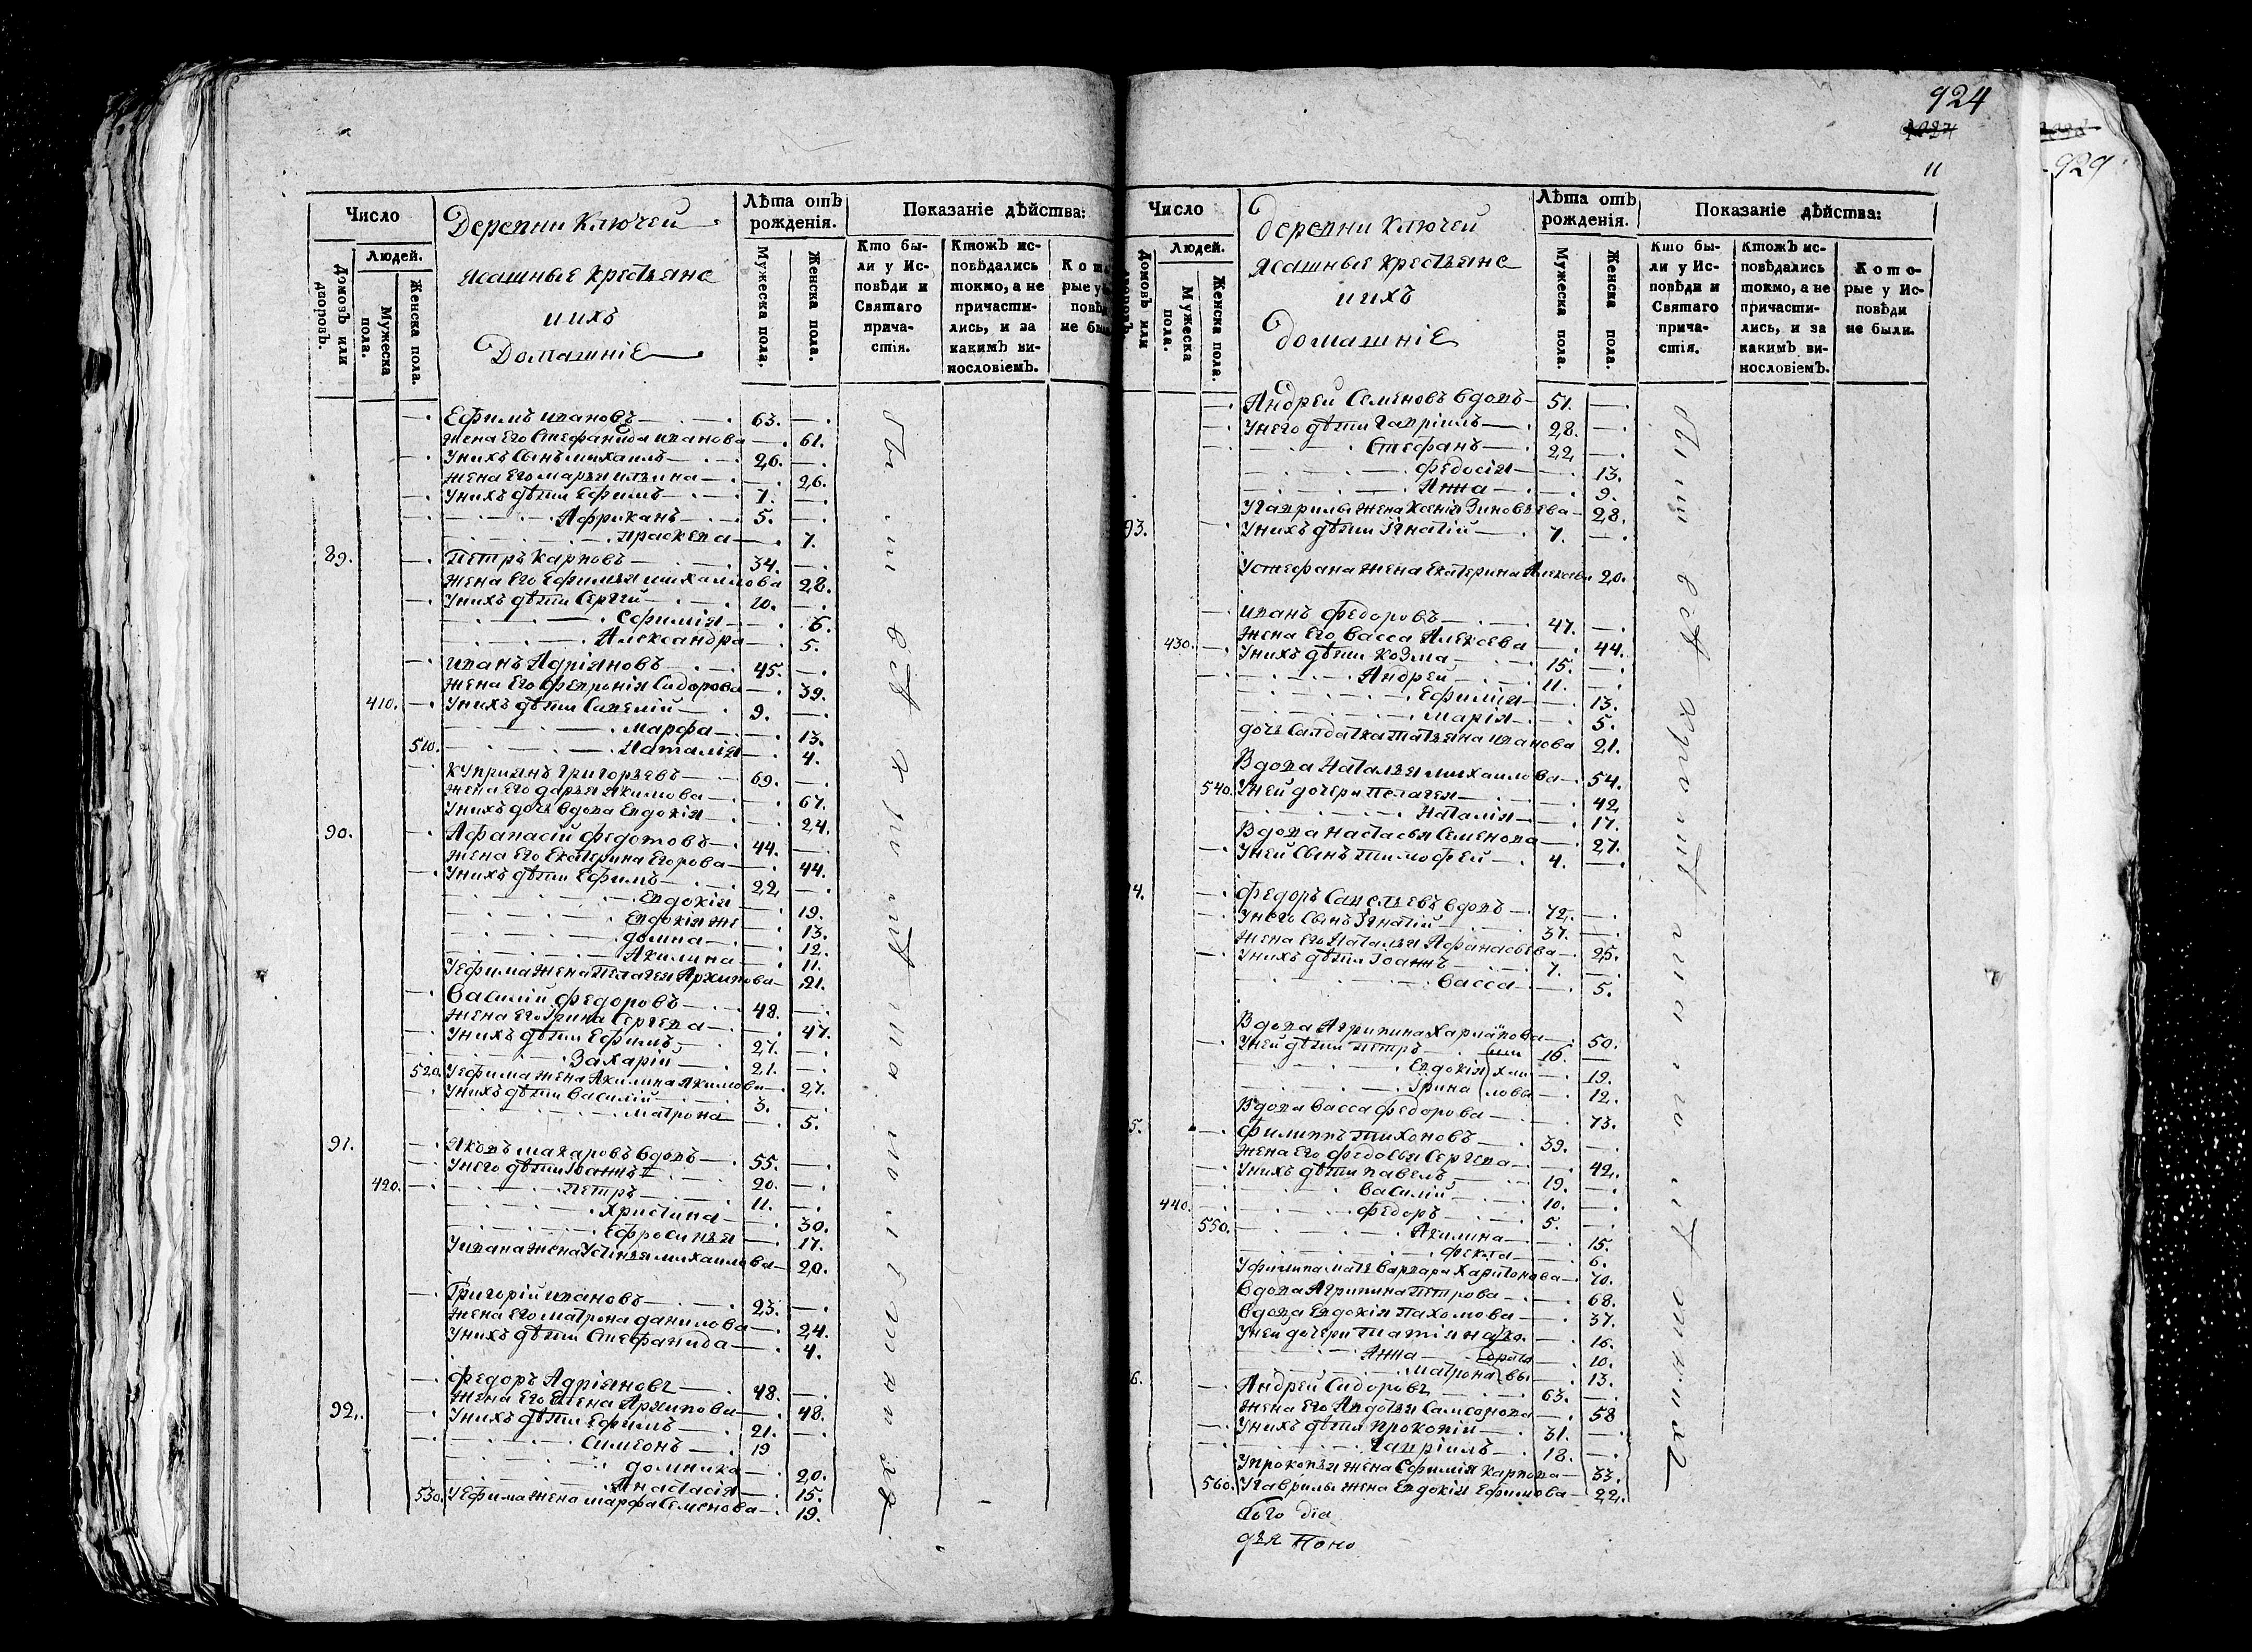 Число
Людей.
Домовъ или дворовъ.
Мужеска пола.
Женска пола.
Деревни Ключей
ясашные крестьяне
и ихъ
Домашнiе
Лѣта отъ рожденiя.
Мужеска пола.
Женска пола.
Показанiе дѣйства:
Кто бы-
ли у Ис-
повѣди и
Святаго
прича-
стiя.
Ктожъ ис-
повѣдались
токмо, а не
причасти-
лись, и за
какимъ ви-
нословiемъ.
Ефимъ Ивановъ 63.
жена его Стефанида Иванова 61.
у нихъ сынъ Михаилъ 26.
жена его Марья Ильина 26.
у нихъ дѣти Ефимъ 7.
Африканъ 5.
Праскева 7.
89. Петръ Карповъ 34.
жена его Ефимья Михаилова 28.
у нихъ дѣти Сергей 10.
Ефимiя 6.
Александра 5.
Иванъ Адрiяновъ 45.
жена его Февронiя Сидорова 39.
410. у нихъ дѣти Савелiй 9.
Марфа 13.
510. Наталiя 4.
Куприянъ Григорьевъ 69.
жена его Дарья Якимова 67.
у нихъ дочь вдова Евдокiя 24.
90. Афанасiй Федотовъ 44.
жена его Екатерина Егорова 44.
у нихъ дѣти Ефимъ 22
Евдокiя 19.
Евдокiя же 13.
Домна 12.
Акилина 11.
у Ефима жена Пелагея Архипова 21.
Василiй Федоровъ 48.
жена его Iрина Сергева 47.
у нихъ дѣти Ефимъ 27.
Захарiй 21.
520. у Ефима жена Акилина Якимова 27.
у нихъ дѣти Василiй 3.
Матрона 5.
91. Яковъ Макаровъ вдовъ 55.
у него дѣти Iоаннъ 20.
420. Петръ 11.
Христина 30.
Ефросинья 17.
у Ивана жена Устинья Михаилова 20.
Григорiй Ивановъ 23.
жена его Матрона Данилова 24.
у нихъ дѣти Стефанида 4.
Федоръ Адрiяновъ 48.
жена его Елена Архипова 48.
92. у нихъ дѣти Ефимъ 21.
Симеонъ 19
Домника 20.
Анастасiя 15.
530. у Ефима жена Марфа Семенова 19.
924
11
929
Число
Людей.
Домовъ или
Мужеска пола.
Женска пола.
Деревни Ключей
ясашные крестьяне
и ихъ
домашнiе
Лѣта отъ рожденiя.
Мужеска пола.
Женска пола.
Показанiе дѣйства:
Кто бы-
ли у Ис-
повѣди и
Святаго
прича-
стiя.
Ктожъ ис-
повѣдались
токмо, а не
причасти-
лись, и за
какимъ ви-
нословiемъ.
Кото-
рые у Ис-
повѣди
не были.
Андрей Семеновъ вдовъ 51.
у него дѣти Гаврiилъ 28.
Стефанъ 22
Федосiя 13.
Анна 9.
у Гаврилы жена Ксенiя Зиновьева 28.
93. у нихъ дѣти Iгнатiй 7.
у Стефана жена Екатерина 20.
Иванъ Федоровъ 47.
жена его Васса Алексева 44.
430. у нихъ дѣти Козма 15.
Андрей 11.
Ефимiя 13.
Марiя 5.
дочь салдатка Татьяна Иванова 21.
Вдова Наталья Михаилова 54.
540. у ней дочери Пелагея 42
Наталiя 17.
Вдова Настасья Семенова 27.
у ней сынъ Тимофей 4.
4. Федоръ Савельевъ вдовъ 72.
у него сынъ Iгнатiй 37.
жена его Наталья Афанасьева 25.
у нихъ дѣти Iоаннъ 7.
Васса 5.
Вдова Агрипина 50.
у ней дѣти Петръ 16.
Евдокiя 19.
Iрина 12.
Вдова Васса Федорова 73.
5. Филиппъ Тихоновъ 39.
жена его Федосья Сергева 42.
у нихъ дѣти Павелъ 19.
Василiй 10.
440. Федоръ 5.
550. Акилина 15.
Фекла 6.
у Филипа мать Варвара Харитонова 70.
вдова Агрипина Петрова 68.
вдова Евдокiя Пахомова 37.
у ней дочери Татiяна 16.
Анна 10.
Матрона 13.
6. Андрей Сидоровъ 63.
жена его Авдотья Самсонова 58
у нихъ дѣти Прокопiй 31.
Гаврiилъ 18.
у Прокопья жена Ефимiя Карпова 33.
560. у Гаврилы жена Евдокiя Ефимова 22.